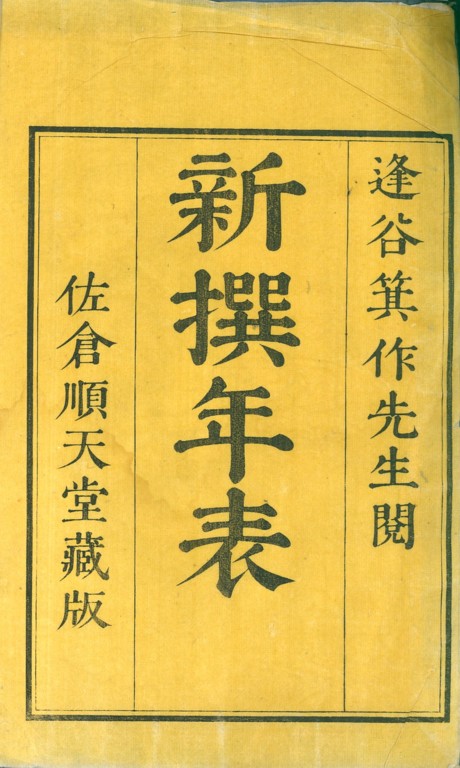 逢谷箕作先生閲
新撰年表
佐倉順天堂藏版